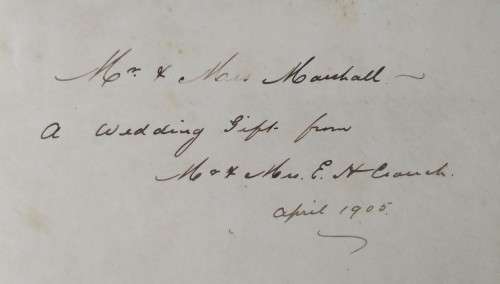 Mr & Mrs Marshall
A Wedding Gift from
Mr & Mrs. E. H Crouch.
April 1905.